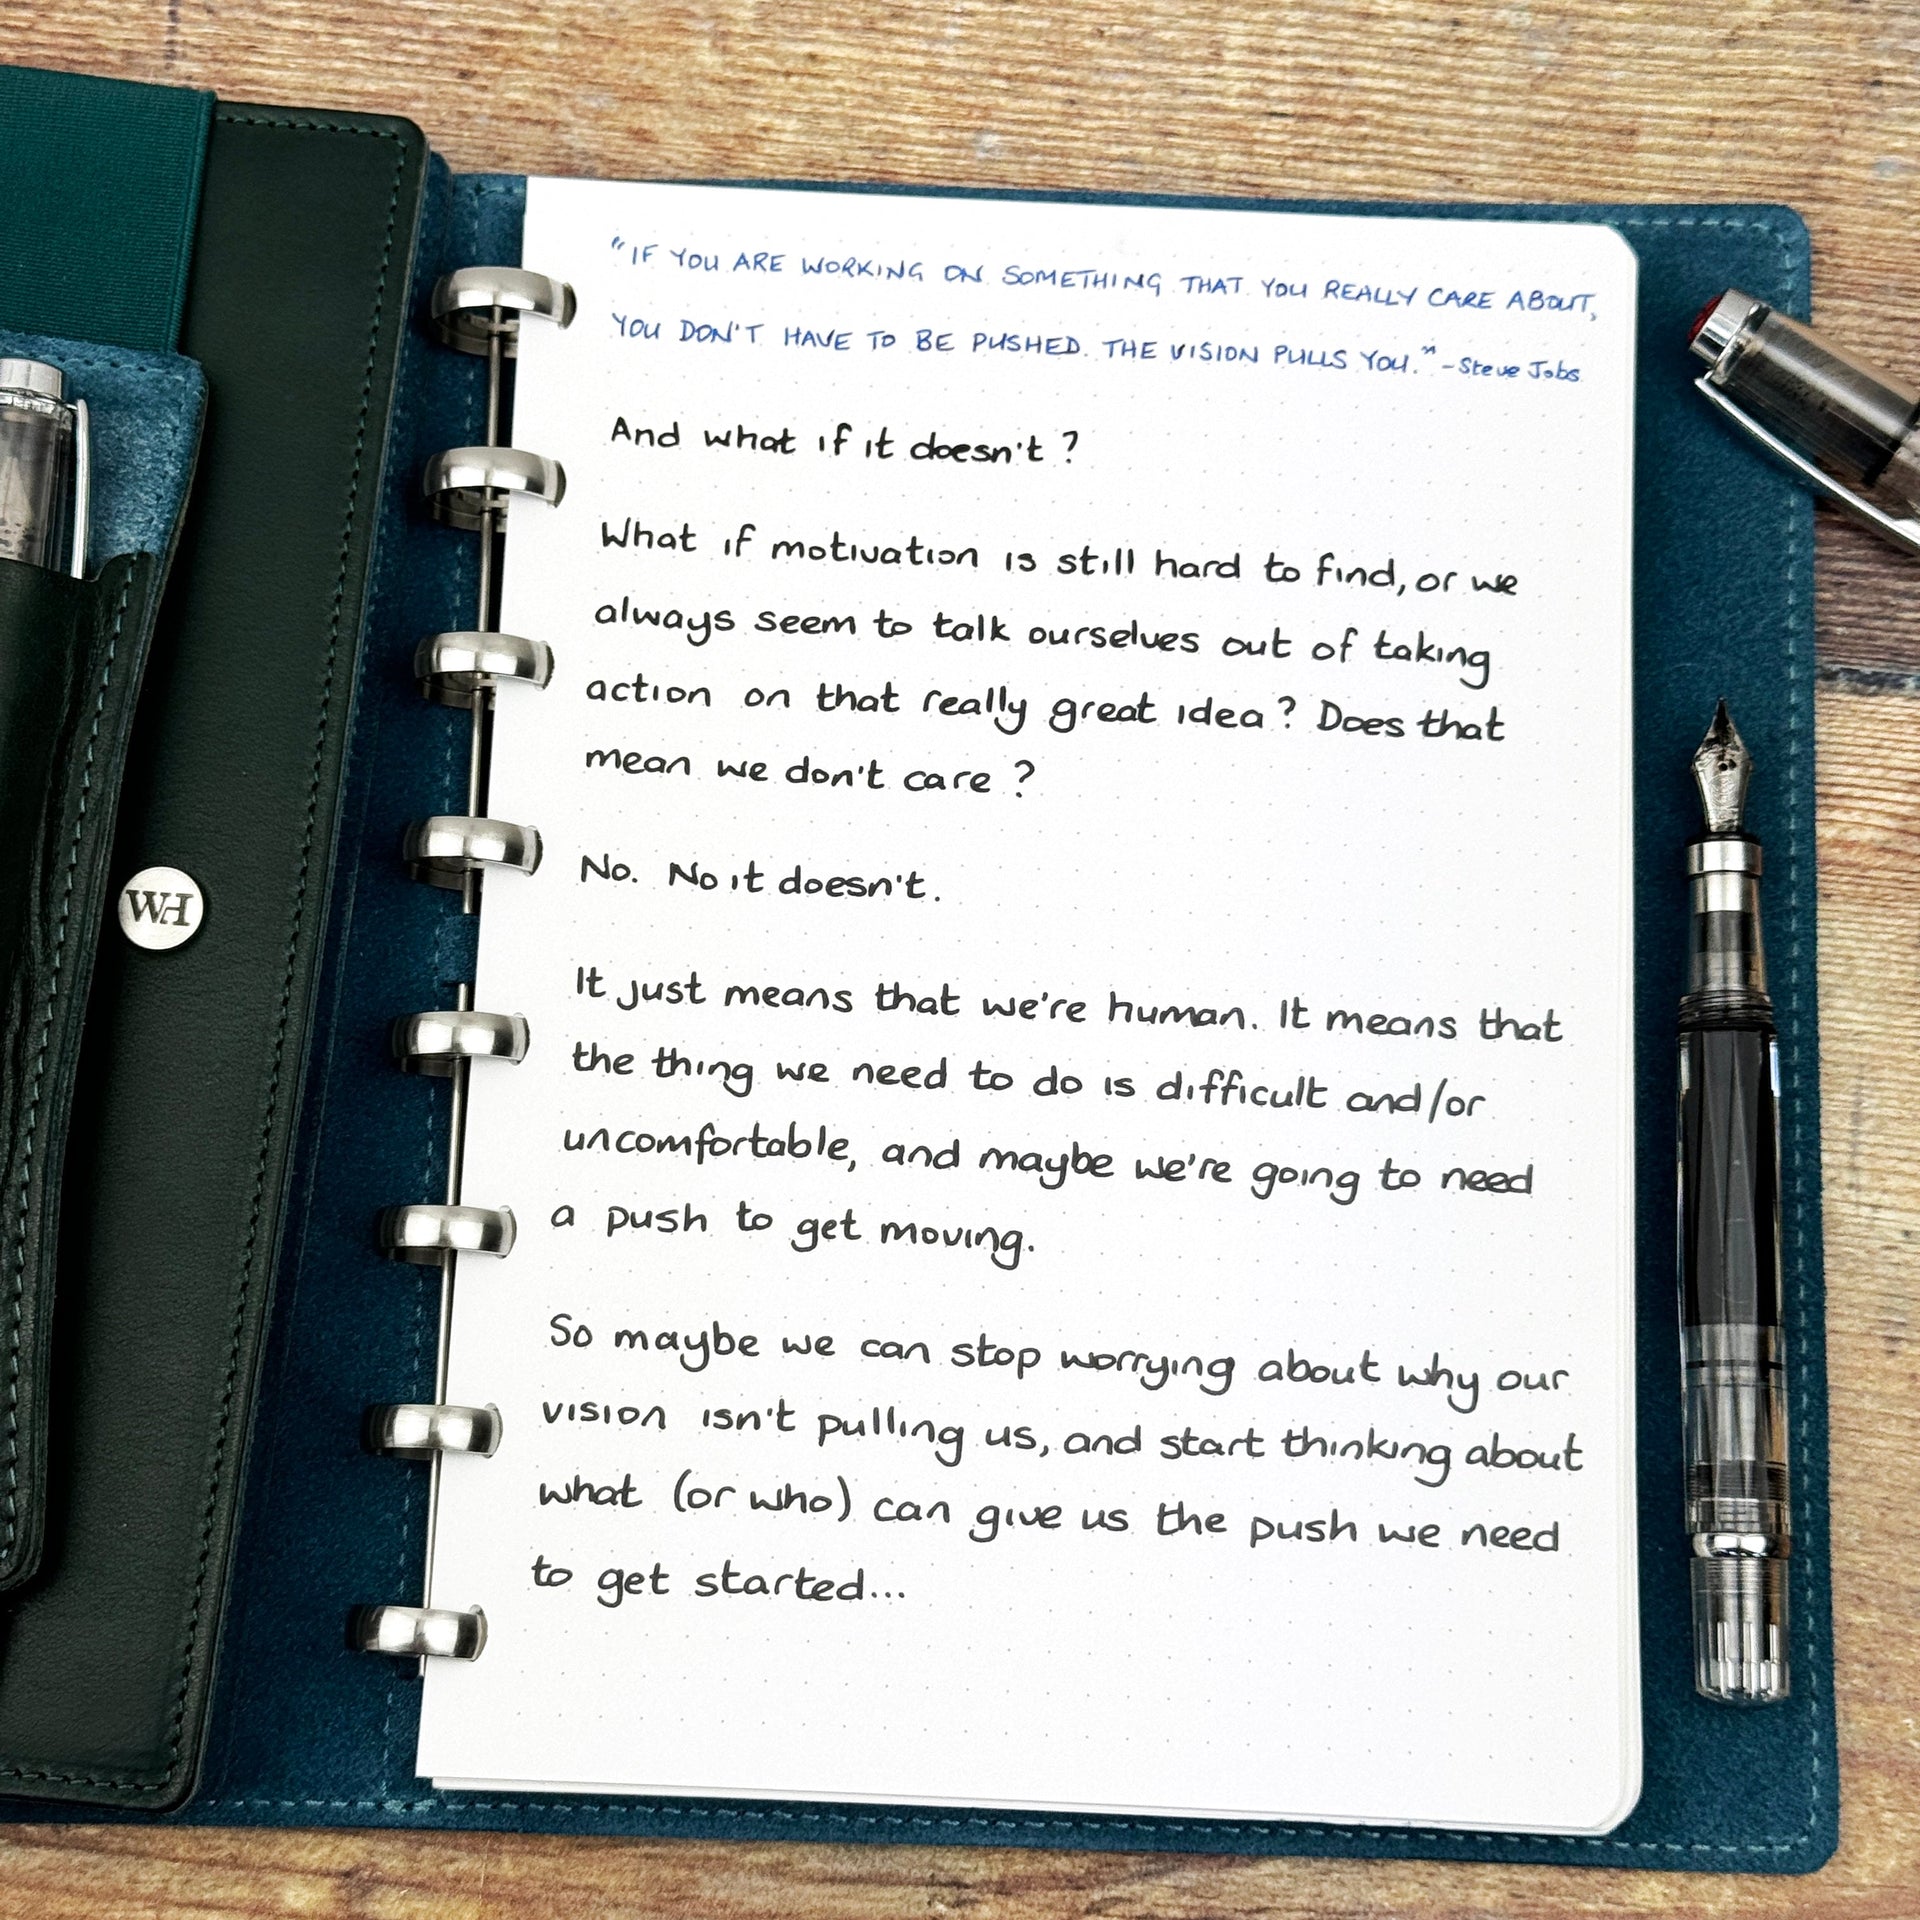 "IF YOU ARE WORKING ON SOMETHING THAT YOU REALLY CARE ABOUT,
YOU DON'T HAVE TO BE PUSHED. THE VISION PULLS YOU." -Steve Jobs
And what if it doesn't?
What if motivation is still hard to find, or we
always seem to talk ourselves out of taking
action on that really great idea? Does that
mean we don't care?
No. No it doesn't.
It just means that we're human. It means that
the thing we need to do is difficult and/or
uncomfortable, and maybe we're going to need
a push to get moving.
So maybe we can stop worrying about why our
vision isn't pulling us, and start thinking about
what (or who) can give us the push we need
to get started...
WH